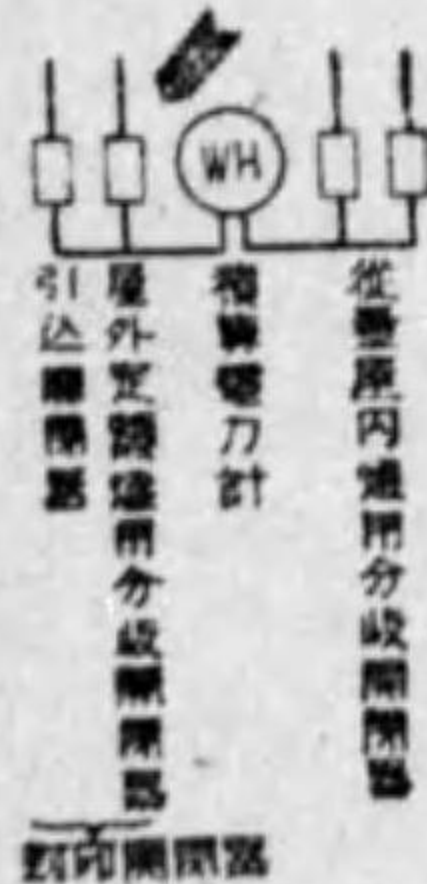 WH
從量屋内燈用分岐開閉器
積算電力計
屋外定額燈用分岐開閉器
引込開閉器
封印開閉器